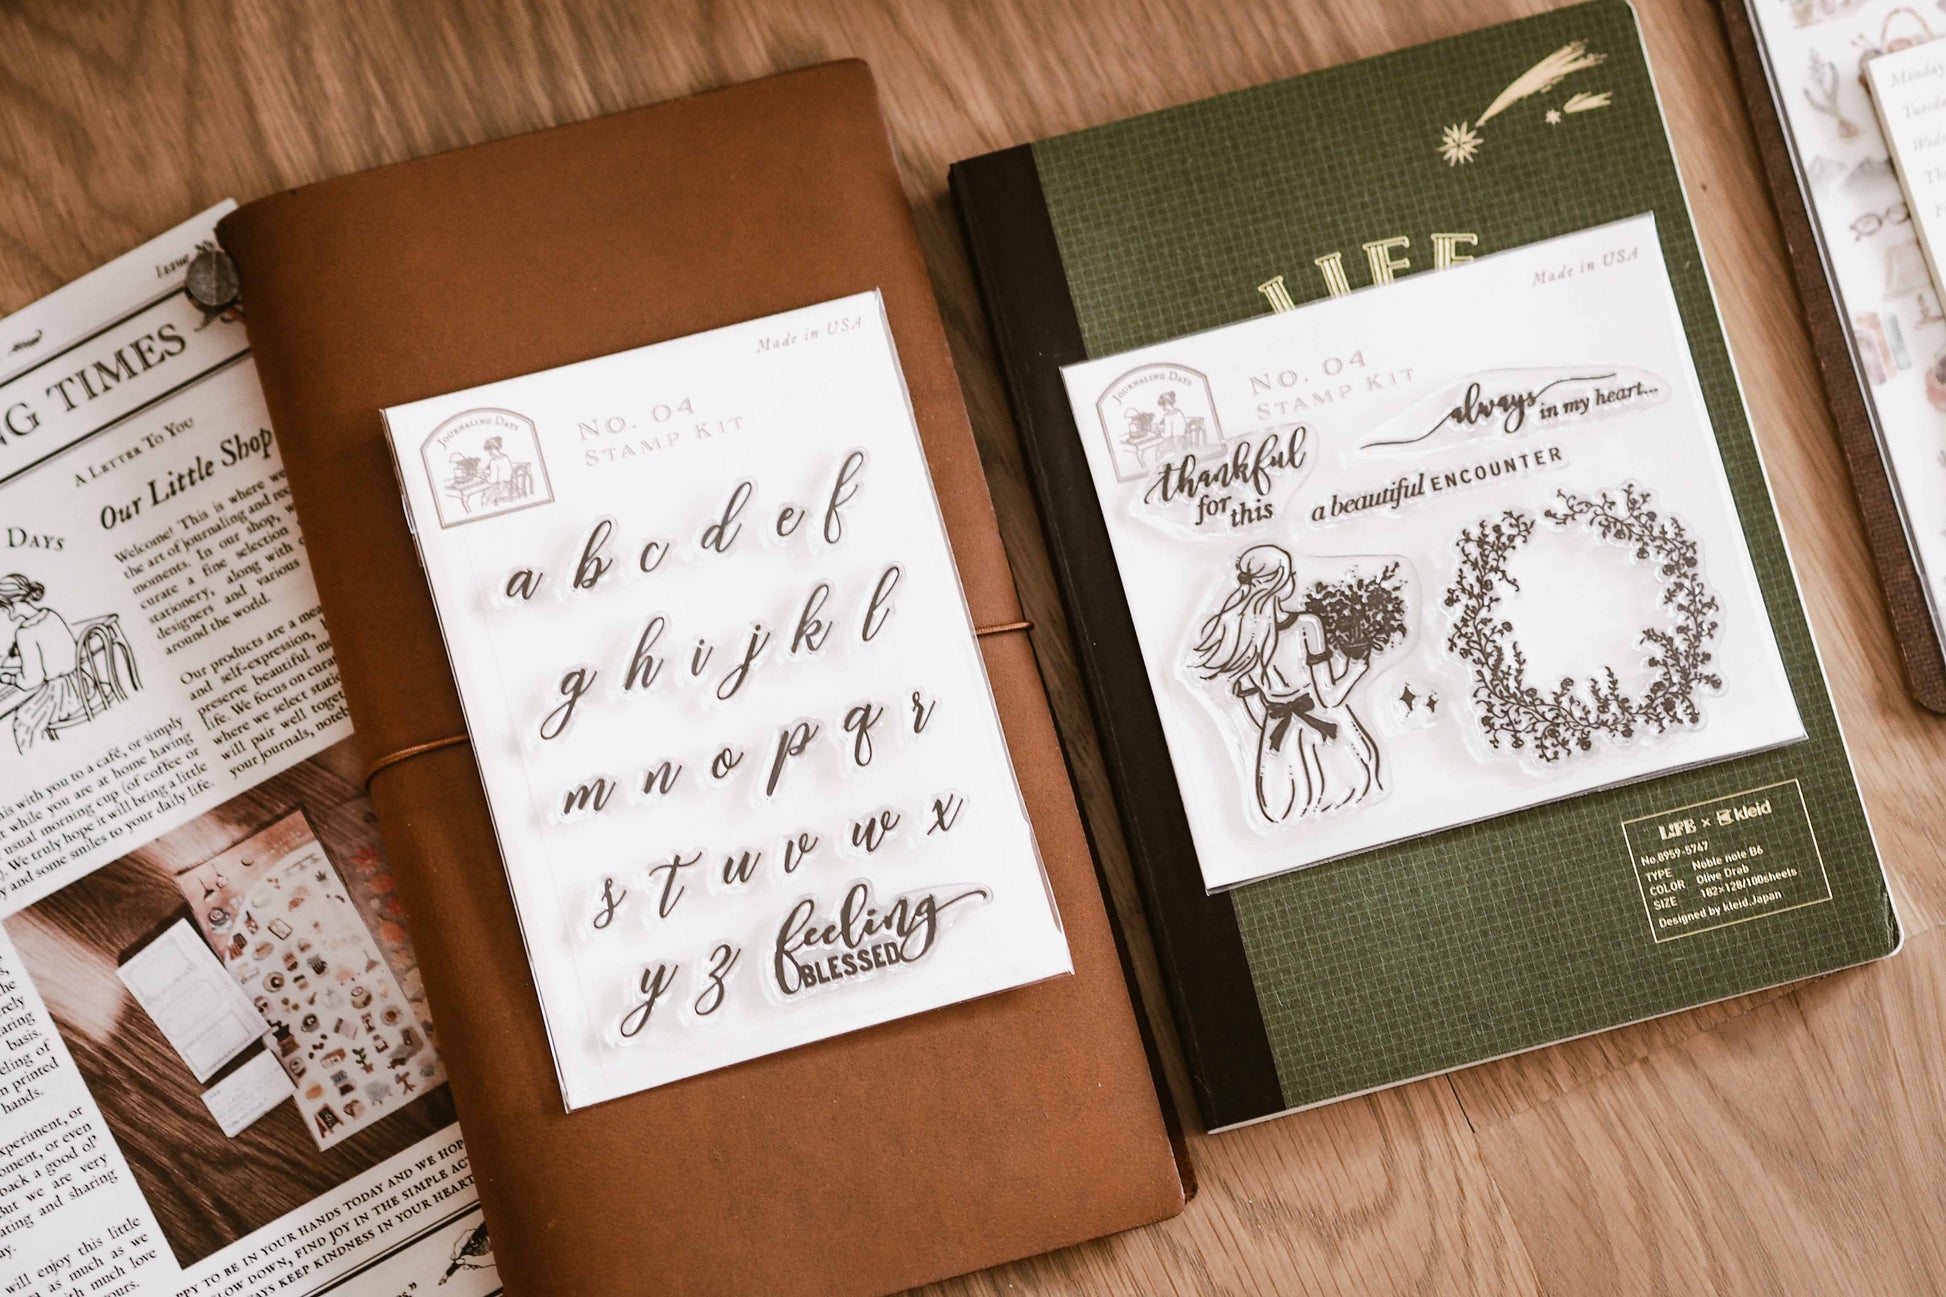 Issue
NG TIMES
A LETTER TO YOU
Our Little Shop
Welcome! This is where we
the art of journaling and rec
moments. In our shop, w
curate a fine selection
stationery, along with
designers and various
around the world.
Our products are a mea
and self-expression,
preserve beautiful
life. We focus on
where we select
will pair well
your journals,
DAYS
his with you to a café, or simply
t while you are at home having
usual morning cup (of coffee or
). We truly hope it will bring a little
y and some smiles to your daily life.
basis.
eling of
n printed
hands.
xperiment, or
oment, or even
back a good ol'
But we are very
ating and sharing
ay.
will enjoy this little
as much as we
th much love
PPY TO BE IN YOUR HANDS TODAY AND WE HOP
LOW DOWN, FIND JOY IN THE SIMPLE ACT
AYS KEEP KINDNESS IN YOUR HEART
Made in USA
JOURNALING DAYS
NO. 04
STAMP KIT
a b c d e f
g h i j k l
m n o p q r
s t u v w x
y z feeling
BLESSED
LIFE
Made in USA
JOURNALING DAYS
NO. 04
STAMP KIT
always in my heart...
thankful
for this
a beautiful ENCOUNTER
LIFE × kleid
No.8959-5747
TYPE Noble note B6
COLOR Olive Drab
SIZE 182×128/100sheets
Designed by kleid,Japan
Monday
Tuesda
Wedn
Th
F